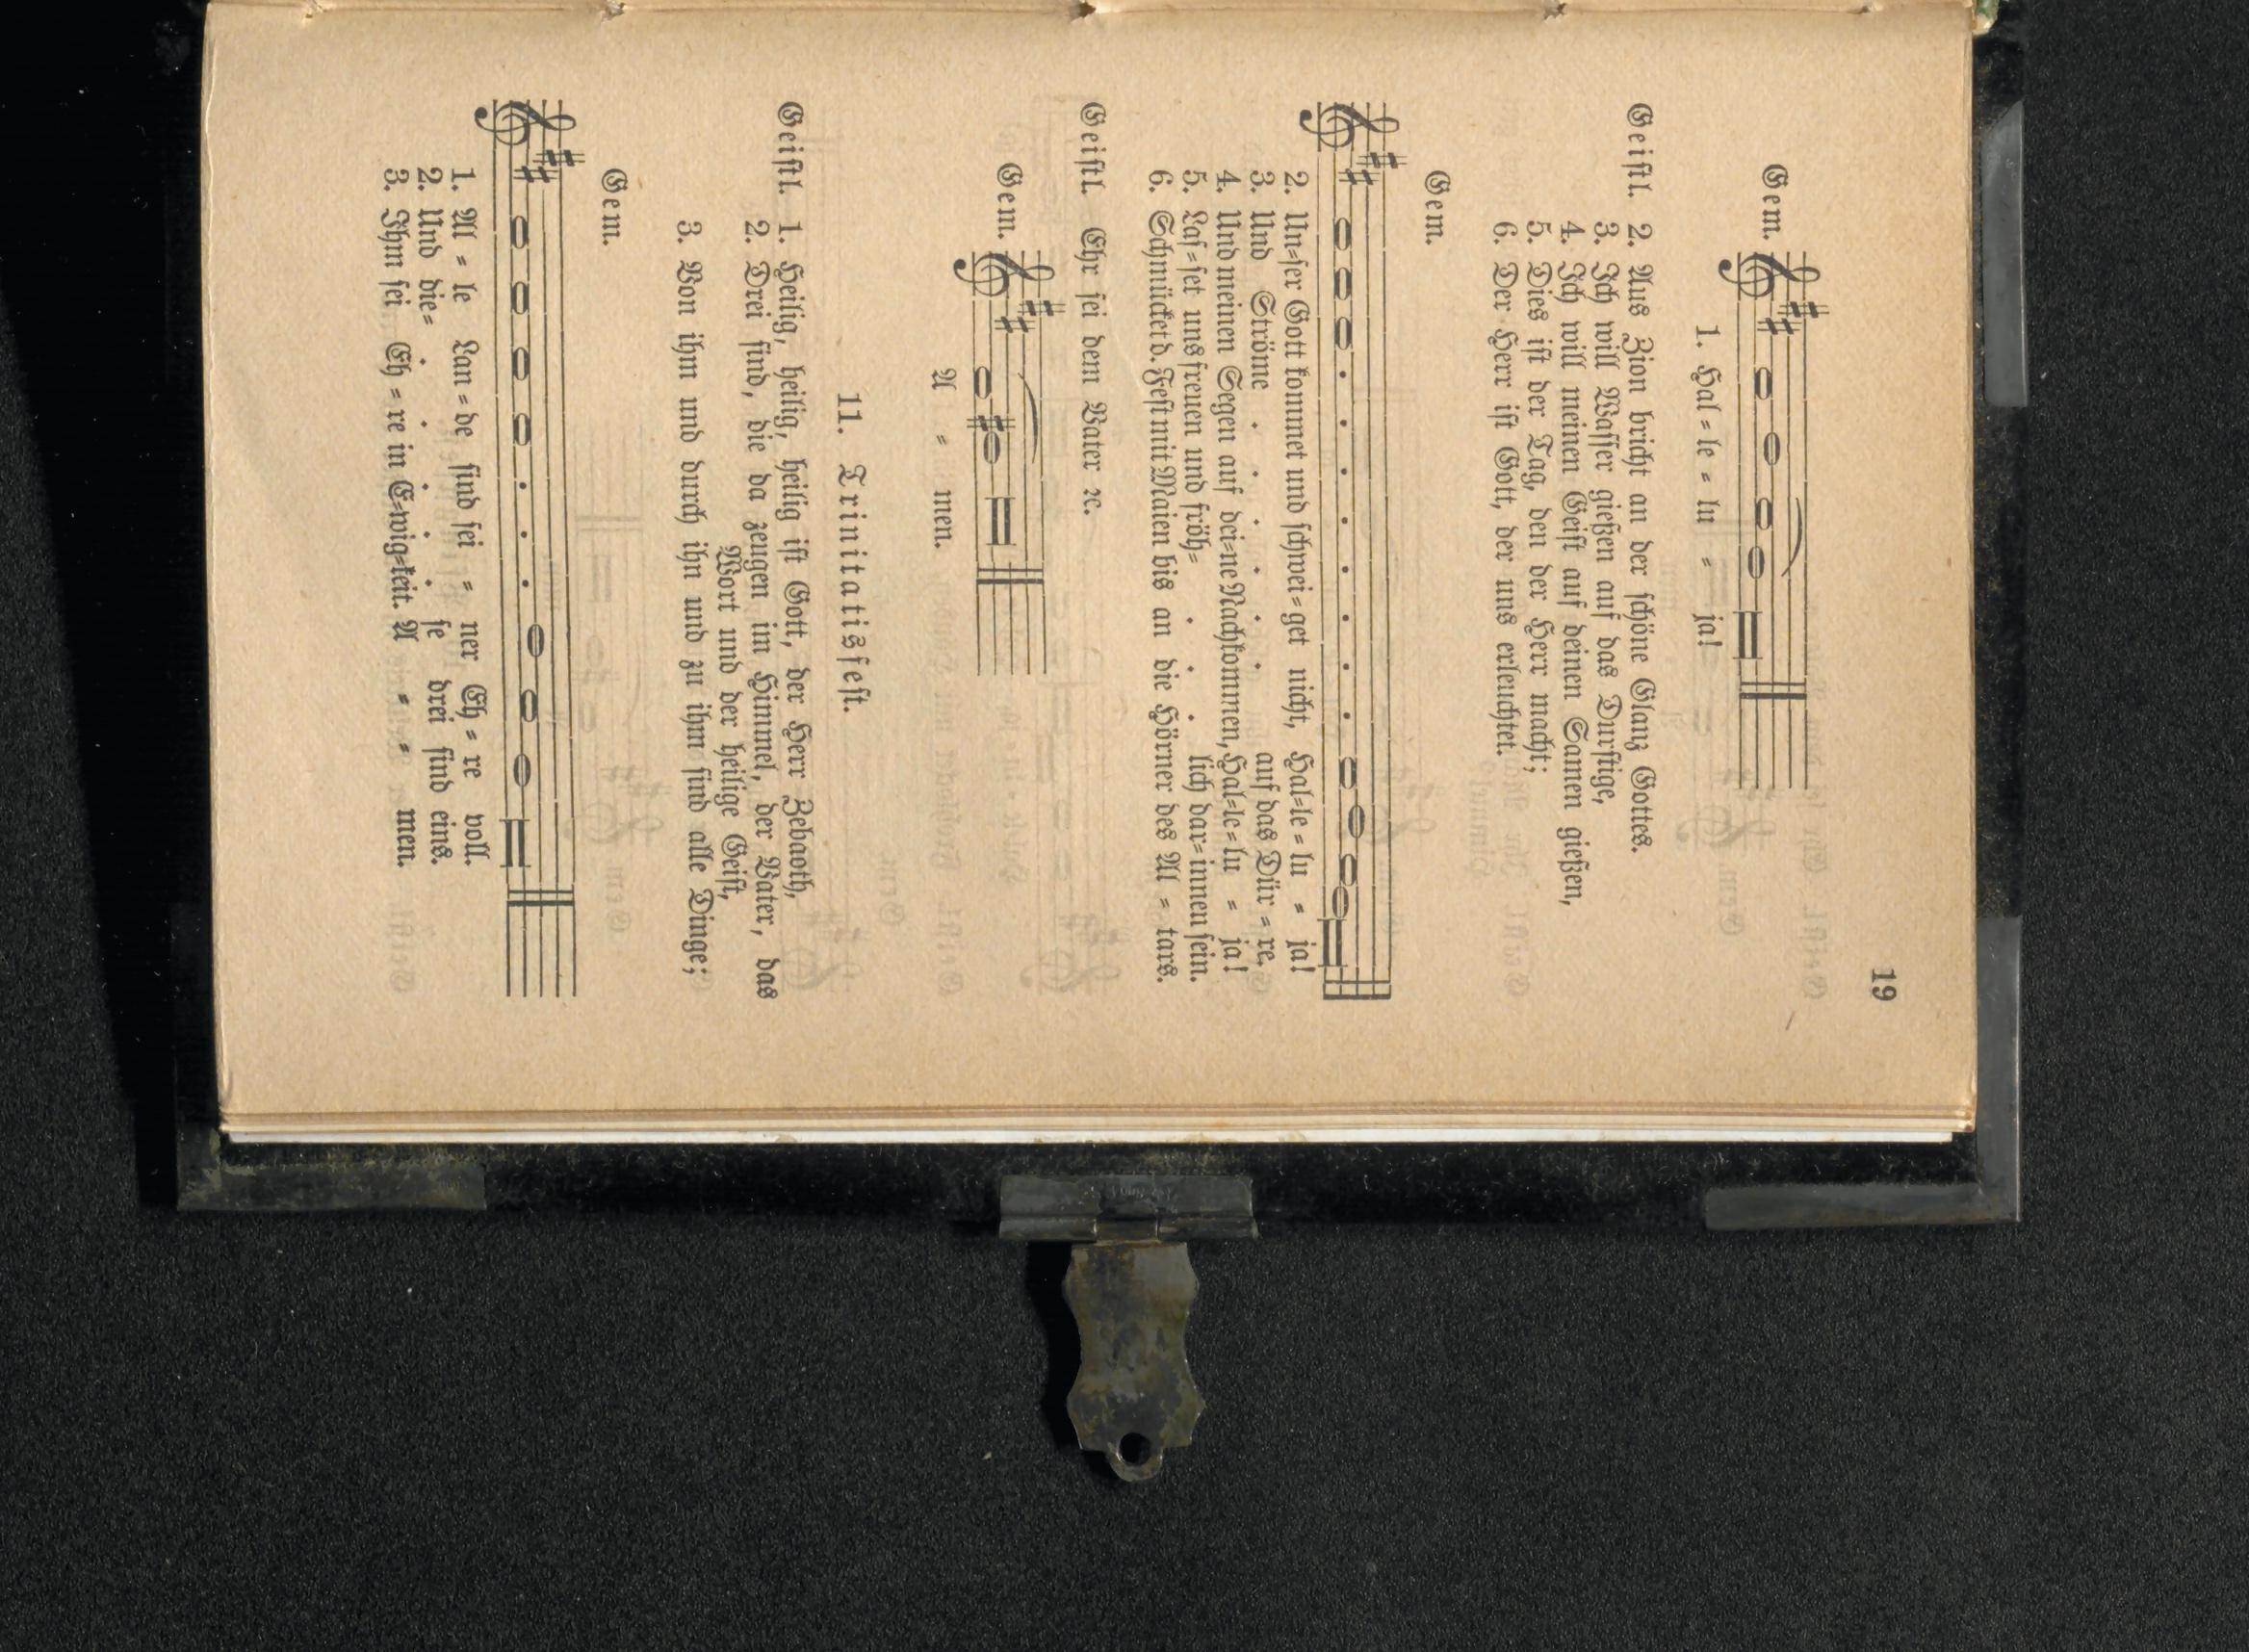 19
Gem.
1. Hal = le = lu = ja!
Geistl. 2. Aus Zion bricht an der schöne Glanz Gottes.
3. Ich will Wasser gießen auf das Durstige,
4. Ich will meinen Geist auf deinen Samen gießen,
5. Dies ist der Tag, den der Herr macht;
6. Der Herr ist Gott, der uns erleuchtet.
Gem.
2. Un=ser Gott kommet und schwei=get nicht, Hal=le=lu = ja!
3. Und Ströme . . . . . . auf das Dür = re.
4. Und meinen Segen auf dei=ne Nachkommen, Hal=le=lu = ja!
5. Las=set uns freuen und fröh= . . . lich dar=innen sein.
6. Schmücket d. Fest mit Maien bis an die Hörner des Al = tars.
Geistl. Ehr sei dem Vater ꝛc.
Gem.
A = men.
11. Trinitatisfest.
Geistl. 1. Heilig, heilig, heilig ist Gott, der Herr Zebaoth,
2. Drei sind, die da zeugen im Himmel, der Vater, das
Wort und der heilige Geist,
3. Von ihm und durch ihn und zu ihm sind alle Dinge;
Gem.
1. Al = le Lan = de sind sei = ner Eh = re voll.
2. Und die= . . . . . se drei sind eins.
3. Ihm sei Eh = re in E=wig=keit. A = = men.